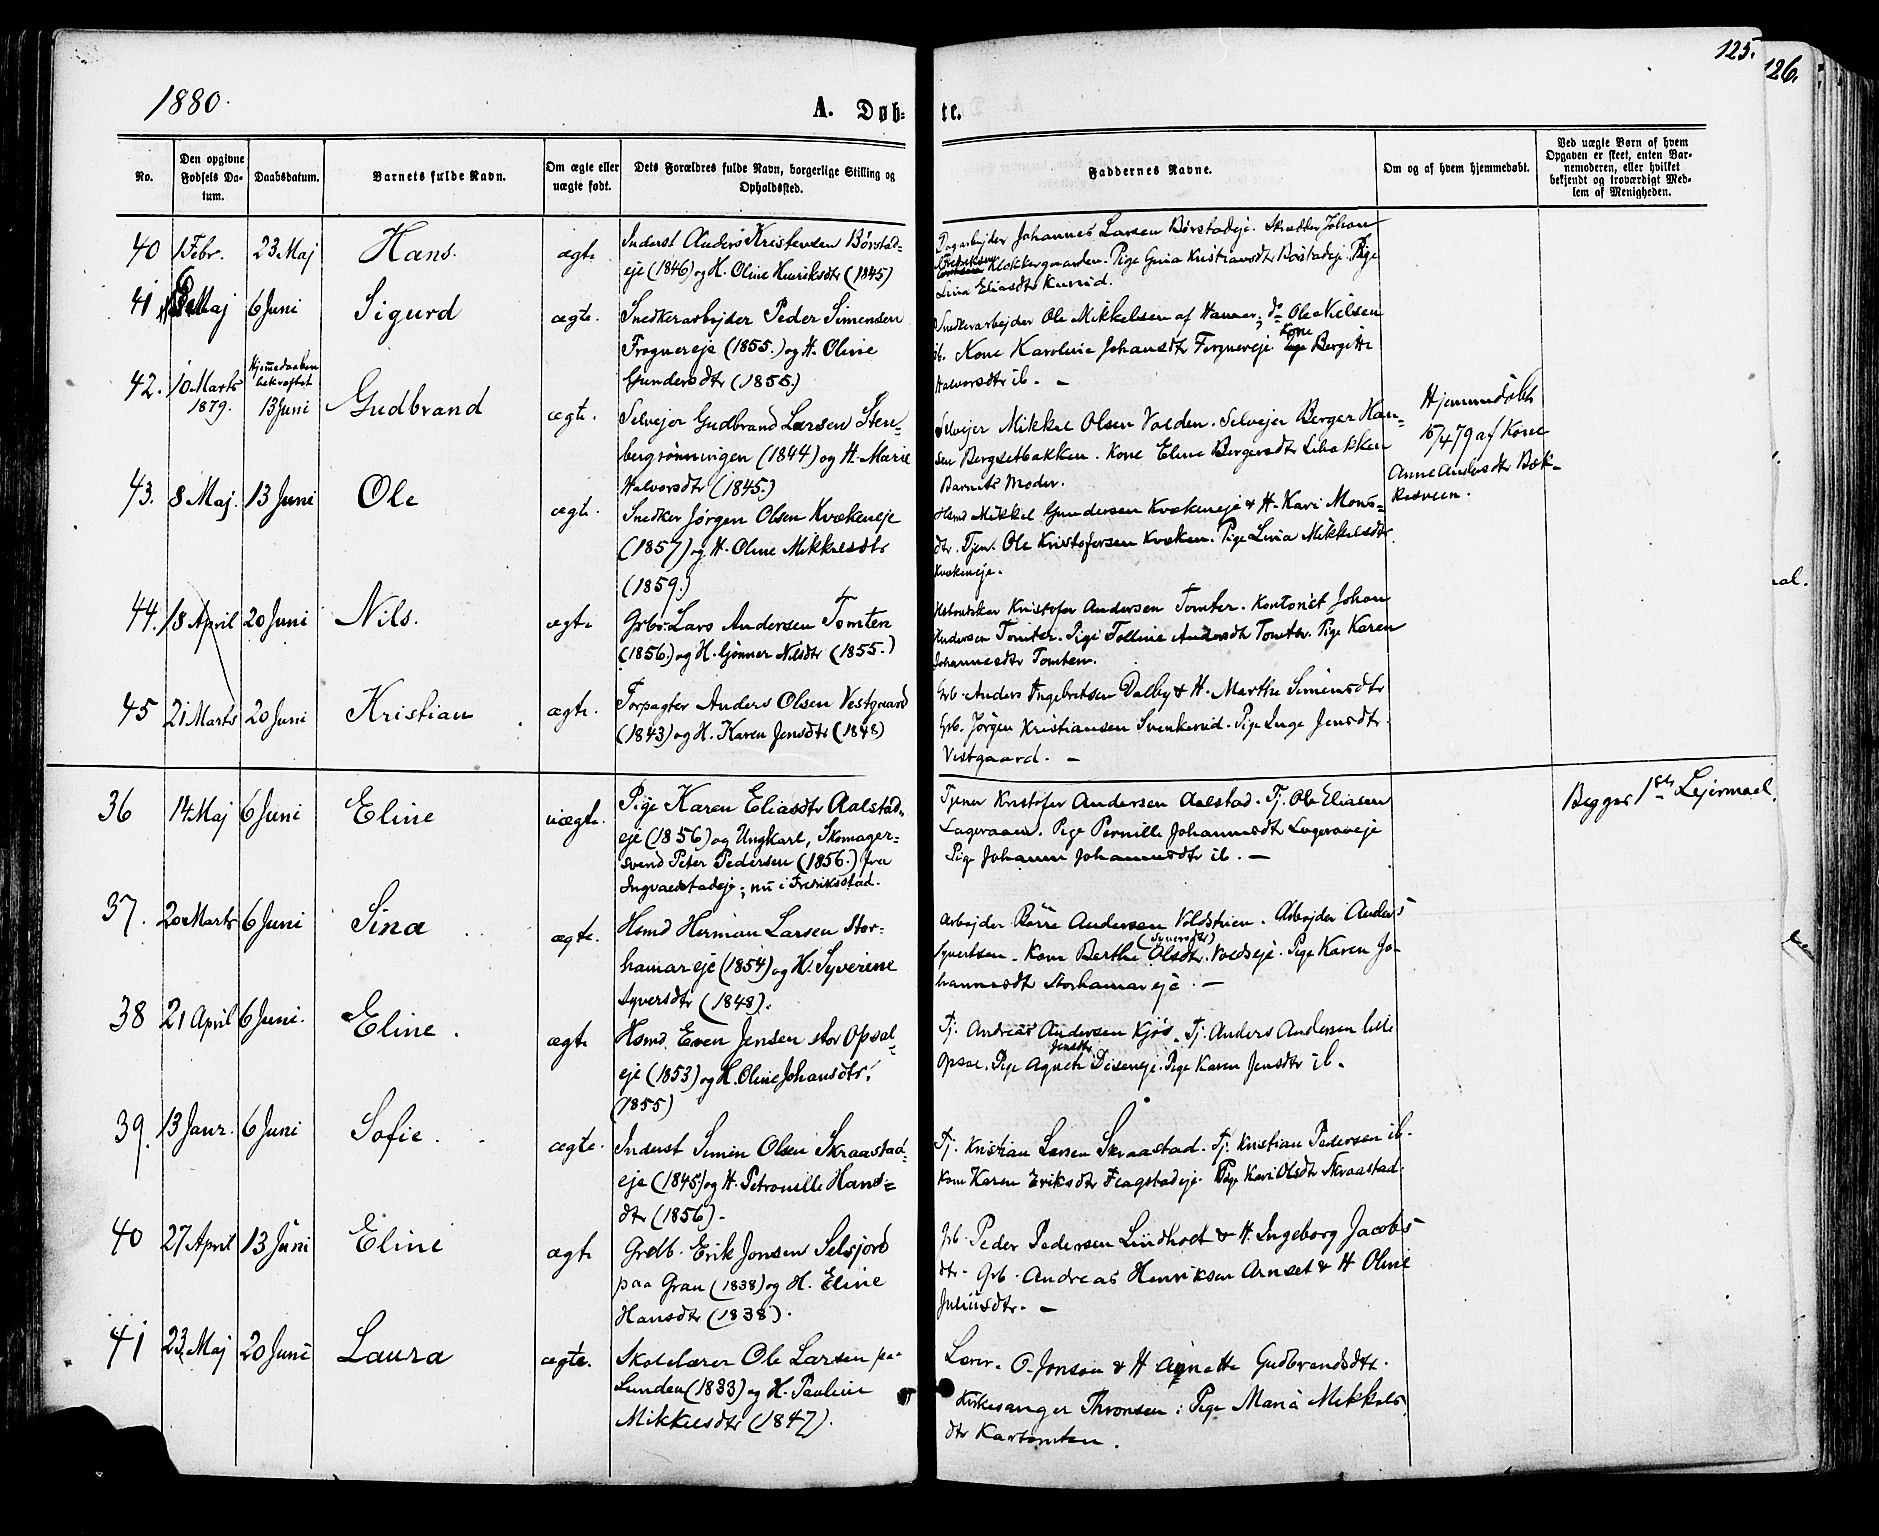 125.
126.
1880.
A. Døb-
te.
No.
Den opgivne Fødsels Da-tum.
Daabsdatum.
Barnets fulde Navn.
Om ægte eller uægte født.
Dets Forældres fulde Navn, borgerlige Stilling og Opholdssted.
Faddernes Navne.
Om og af hvem hjemmedøbt.
Ved uægte Børn af hvem Opgaven er skeet, enten Bar-nemoderen, eller hvilket bekjendt og troværdigt Med-lem af Menigheden.
40 1 Febr. 23 Maj Hans. ægte
Inderst Anders Kristensen Børstad-
eje (1846) og H. Oline Henriksdtr (1845)
Dagarbejder Johannes Larsen Børstadeje. Skrædder Johan
Fredriksen Klokkergaarden. Pige Gina Kristiansdtr Børstadeje. Pige
Lina Eliasdtr Kurud.
41 Maj 6 Juni Sigurd ægte.
Snedkerarbejder Peder Simensen
Frognereje (1855.) og H. Oline
Gundersdtr (1855.)
Snedkerarbejder Ole Mikkelsen af Hamar; do Ole Nielsen
ib. Kone Karoline Johansdtr Frognereje Kone Bergitte
Halvorsdtr ib. —
42. 10 Marts 1879. Hjemmedaaben bekræftet 13 Juni Gudbrand ægte.
Selvejer Gudbrand Larsen Sten-
bergrønningen (1844) og H. Marie
Halvorsdtr (1845.)
Selvejer Mikkel Olsen Volden. Selvejer Berger Han-
sen Bergsetbakken. Kone Eline Bergersdtr Libakken
Barnets Moder.
Hjemmedøbt
15/4 79 af Kone
Anne Andersdtr Bæk-
kesveen.
43. 8 Maj. 13 Juni Ole ægte.
Snedker Jørgen Olsen Kvækeneje
(1857) og H. Oline Mikkelsdtr
(1859.)
Hsmd Mikkel Gundersen Kvækeneje & H. Kari Mons-
dtr. Tjen. Ole Kristofersen Kvæken. Pige Lina Mikkelsdtr
Kvækeneje.
44. 18 April 20 Juni Nils. ægte
Grbr. Lars Andersen Tomten
(1856.) og H. Gjønner Nilsdtr (1855.)
Kristofer Andersen Tomter. Kontorist Johan
Andersen Tomter. Pige Tolline Andersdtr Tomter. Pige Karen
Johannesdtr Tomten.
45 21 Marts 20 Juni Kristian ægte.
Forpagter Anders Olsen Vestgaard
(1843) og H. Karen Jensdtr (1848)
Grb. Anders Engebretsen Dalby & H. Marthe Simensdtr
Grb. Jørgen Kristiansen Svenkerud. Pige Inge Jensdtr.
Vestgaard. —
36 14 Maj 6 Juni Eline uægte.
Pige Karen Eliasdtr Aalstad-
eje (1856) og Ungkarl, Skomager-
svend Peter Pedersen (1856.) fra
Ingvaldstadeje; nu i Fredriksstad.
Tjener Kristofer Andersen Aalstad. Tj. Ole Eliasen
Lageraaen. Pige Pernille Johannesdtr Lageraaeje
Pige Johanne Johannesdtr ib. —
Begges 1ste Lejermaal.
37. 20 Marts 6 Juni Sina ægte.
Hsmd Herman Larsen Stor-
hamareje (1854) og H. Syverine
Syversdtr (1848).
Arbejder Børre Andersen Voldstuen. Arbejder Anders
Syvertsen. Kone Berthe (Syversdtr) Olsdtr. Voldseje. Pige Karen Jo-
hannesdtr Storhamareje. —
38 21 April 6 Juni. Eline. ægte
Hsmd. Even Jensen stor Opsal-
eje (1853) og H. Oline Johansdtr.
(1855)
Tj. Andreas Andersen Kjøs. Tj. Anders Andersen lille
Opsal. Pige Agnete Jensdtr Diseneje. Pige Karen Jensdtr ib.
39. 13 Janr. 6 Juni Sofie. ægte.
Inderst Simen Olsen Skraastad-
eje (1845) og H. Petronille Hans-
dtr (1856).
Tj. Kristian Larsen Skraastad. Tj. Kristian Pedersen ib.
Kone Karen Eriksdtr Flagstadeje. Pige Kari Olsdtr Skraastad.
40 27 April 13 Juni Eline ægte
Grdb. Erik Jonsen Selsjord
paa Gran (1838) og H. Eline
Hansdtr (1838).
Grb. Peder Pedersen Lindholt & H. Ingeborg Jacobs-
dtr. Grb. Andreas Henriksen Arnset & H Oline
Juliusdtr. —
41 23. Maj 20 Juni Laura ægte.
Skolelærer Ole Larsen paa
Lunden (1833) og H. Pauline
Mikkelsdtr (1847).
Lærer O. Jonsen & H Agnette Gudbrandsdtr.
Kirkesanger Thronsen; Pige Maria Mikkels-
dtr Kartomten.